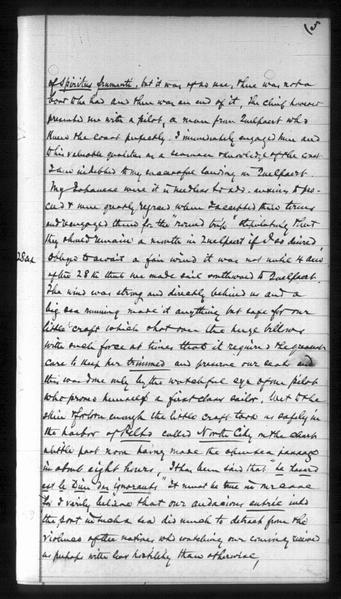 15
of Spiritus frumenti, but it was of no use, there was not a
boat to be had and there was an end of it. The Chief however
presented me with a pilot, a man from Quelpaert who
knew the coast perfectly. I immediately engaged him and
to his valuable qualities as a seaman & knowledge of the coast
I am indebted to my successful landing in Quelpaert.
My Japanese were it is needless to add, anxious to pro-
ceed & were greatly rejoiced when I accepted their terms
and engaged them for the "round trip" stipulating that
they should remain a month in Quelpaert if I so desired.
28th Obliged to await a fair wind it was not until 4 a.m.
of the 28th that we made sail southward to Quelpaert.
The wind was strong and directly behind us and a
big sea running made it anything but safe for our
little craft which shot over the huge billows
with such force at times that it required the greatest
care to keep her trimmed and preserve our seats and
this was done only by the watchful eye of our pilot
who proved himself a first class sailor. But the
skies forlorn enough the little craft took us safely in
the harbor of called North City on the chart
a little past noon having made the open sea passage
in about eight hours. It has been said that "le hasard
est le Dieu des ignorants" It must be true in our case
for I verily believe that our audacious entrée into
the port in such a sea did much to detract from the
violence of the natives who watching our coming received
us perhaps with less hostility than otherwise,